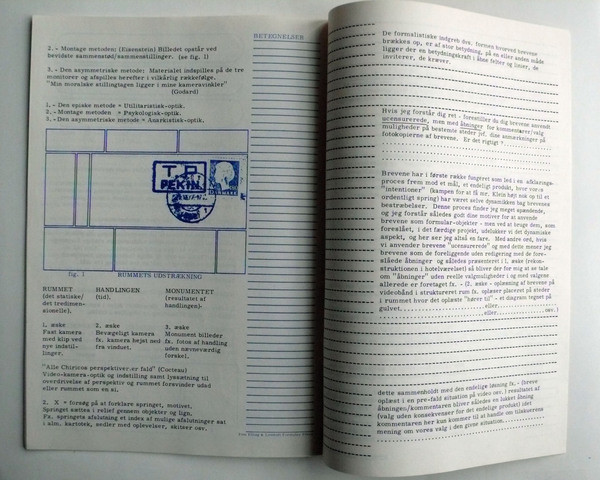 BETEGNELSER
2. - Montage metoden: (Eisenstein) Billedet opstår ved
bevidste sammenstød/sammenstillinger. (se fig. 1)
3. - Den asymmetriske metode: Materialet indspilles på de tre
monitorer og afspilles herefter i vilkårlig rækkefølge.
"Min moralske stillingtagen ligger i mine kameravinkler"
(Godard)
1. - Den episke metode = Utilitaristisk-optik.
2. - Montage metoden = Psykologisk-optik.
3. - Den asymmetriske metode = Anarkistisk-optik.
T.P.
PEKIN
DANMARK
fig. 1 RUMMETS UDSTRÆKNING
RUMMET HANDLINGEN MONUMENTET
(det statiske/ (tid). (resultatet af
det tredimen- handlingen).
sionelle).
1. æske 2. æske 3. æske
Fast kamera Bevægeligt kamera Monument billeder
med klip ved fx. kamera hejst ned fx. fotos af handling
nye indstil- fra vinduet. uden nævneværdig
linger. forskel.
"Alle Chiricos perspektiver er fald" (Cocteau)
Video-kamera-optik og indstilling samt lyssætning til
overdrivelse af perspektiv og rummet forsvinder udad
eller rummet som en æi.
2. X = forsøg på at forklare springet, motivet.
Springet sættes i relief gennem objekter og lign.
Fx. springets afslutning et index af mulige afslutninger sat
i alm. kartotek, sedler med oplevelser, skitser osv.
De formalistiske indgreb dvs. formen hvorved brevene
brækkes op, er af stor betydning, på en eller anden måde
ligger der en betydningskraft i åbne felter og linier, de
inviterer, de kræver.
Hvis jeg forstår dig ret - forestiller du dig brevene anvendt
ucensurerede, men med åbninger for kommentarer/valg
muligheder på bestemte steder jvf. dine anmærkninger på
fotokopierne af brevene. Er det rigtigt ?
Brevene har i første række fungeret som led i en afklarings-
proces frem mod et mål, et endeligt produkt, hvor vore
"intentioner" (kampen for at få mr. Klein højt nok op til et
ordentligt spring) har været selve dynamikken bag brevenes
bestræbelser. Denne proces finder jeg meget spændende,
og jeg forstår således godt dine motiver for at anvende
brevene som formular-objekter - men ved at bruge dem, som
foreslået, i det færdige projekt, udelukker vi det dynamiske
aspekt, og her ser jeg altså en fare. Med andre ord, hvis
vi anvender brevene "ucensurerede" og med dette mener jeg
brevene som de foreliggende uden redigering med de fore-
slåede åbninger og således præsenteret i 1. æske (rekon-
struktionen i hotelværelset) så bliver der for mig at se tale
om "åbninger" uden reelle valgmuligheder i og med valgene
allerede er foretaget fx. - (2. æske - oplæsning af brevene på
videobånd i struktureret rum fx. oplæser placeret på steder
i rummet hvor det oplæste "hører til" - et diagram tegnet på
gulvet.................eller....................
..................eller..................osv.)
dette sammenholdt med den endelige løsning fx. - (breve
oplæst i en pre-fald situation på video osv.) resultatet af
åbningen/kommentaren bliver således en lukket åbning
(valg uden konsekvenser for det endelige produkt) idet
kommentaren her kun kommer til at handle om tilskuerens
mening om vores valg i den givne situation.